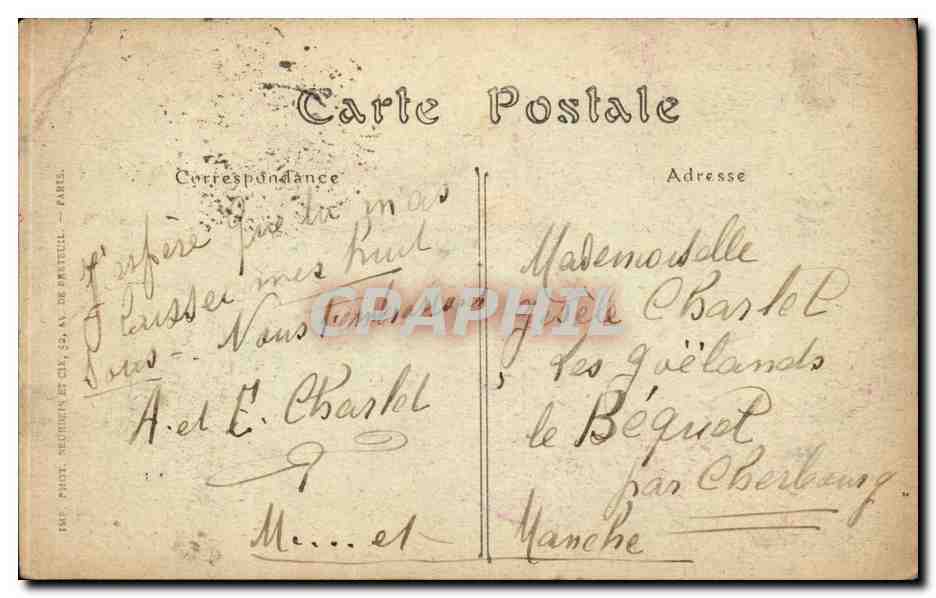 Carte Postale
Correspondance
Adresse
J'espère que tu m'as
laissée mes huit
sous -. Nous t'embrassons
A. et E. Charlet
M.....et
Mademoiselle
Gisèle Charlet
Les Goëlands
le Béquet
par Cherbourg.
Manche
IMP. PHOT. NEURDEIN ET CIE, 52, AV. DE BRETEUIL. — PARIS.
CPAPHIL